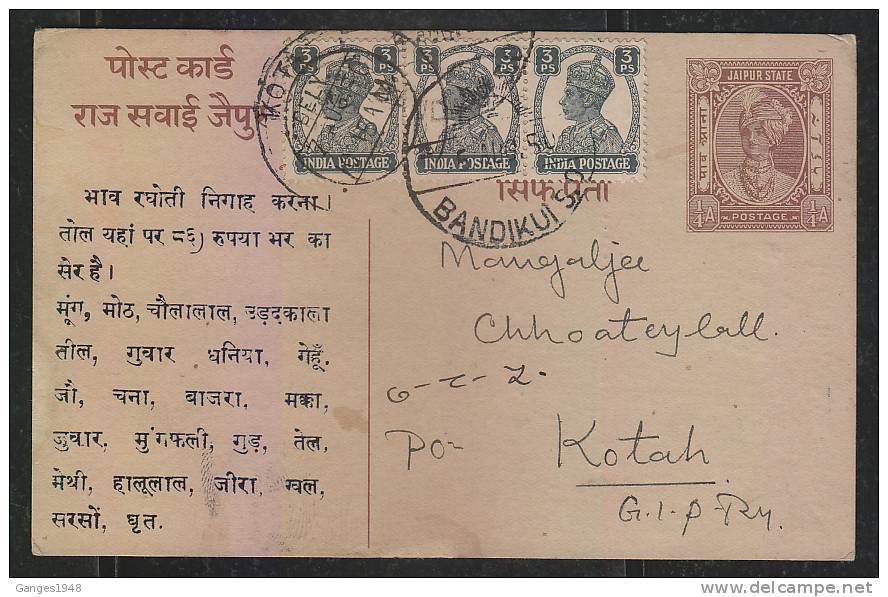 पोस्ट कार्ड
राज सवाई जैपुर
3 PS
INDIA POSTAGE
3 PS
INDIA POSTAGE
3 PS
INDIA POSTAGE
JAIPUR STATE
पाव आना
1/4 A
POSTAGE
1/4 A
BANDIKUI S.O.
सिर्फ पता
भाव रघोती निगाह करना।
तोल यहां पर ८६) रुपया भर का
सेर है।
मूंग, मोठ, चौलालाल, उड़दकाला
तील, गुवार धनिया, गेहूँ.
जौ, चना, बाजरा, मक्का,
जुवार, मुंगफली, गुड़, तेल,
मेथी, हालूलाल, जीरा, ग्वल,
सरसों, घृत.
Mangaljee
Chhoateylall.
PO-
Kotah
G.I.P.Ry.
Ganges1948
www.delcampe.net